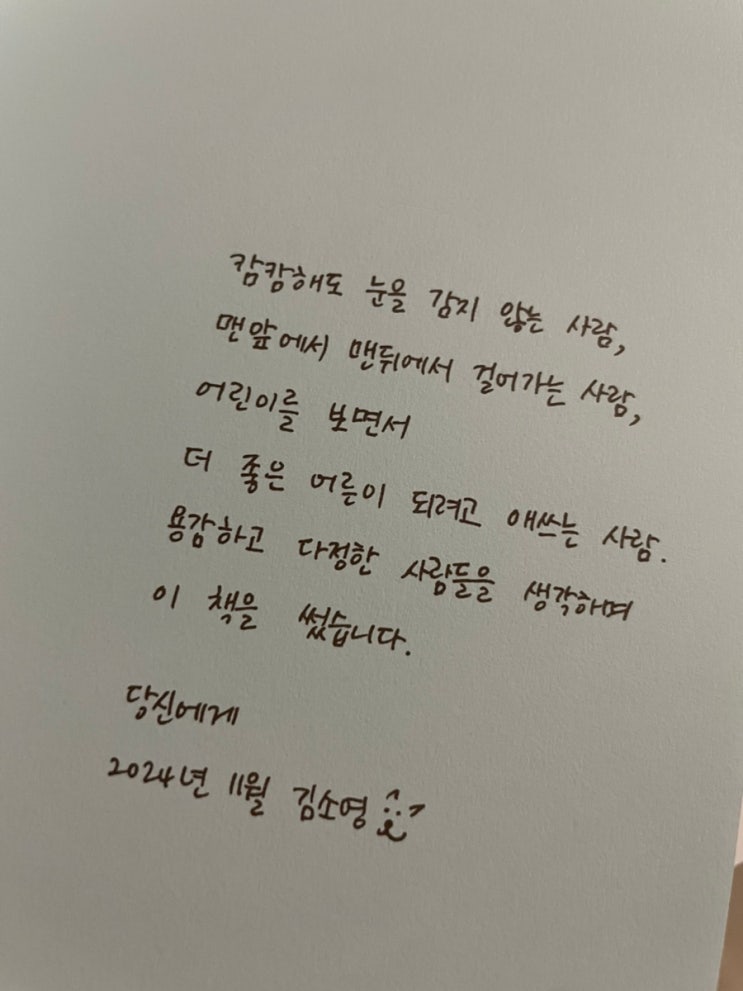 캄캄해도 눈을 감지 않는 사람,
맨앞에서 맨뒤에서 걸어가는 사람,
어린이를 보면서
더 좋은 어른이 되려고 애쓰는 사람.
용감하고 다정한 사람들을 생각하며
이 책을 썼습니다.
당신에게
2024년 11월 김소영